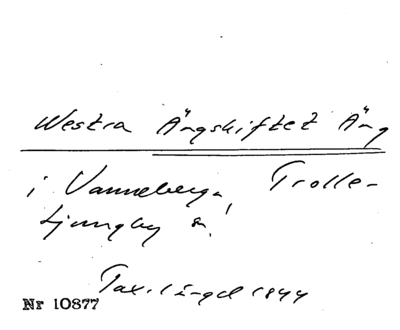 Westra Ängskiftet Äng
i Vanneberga, Trolle-
Ljungby s.
Tax.längd 1844
Nr 10877